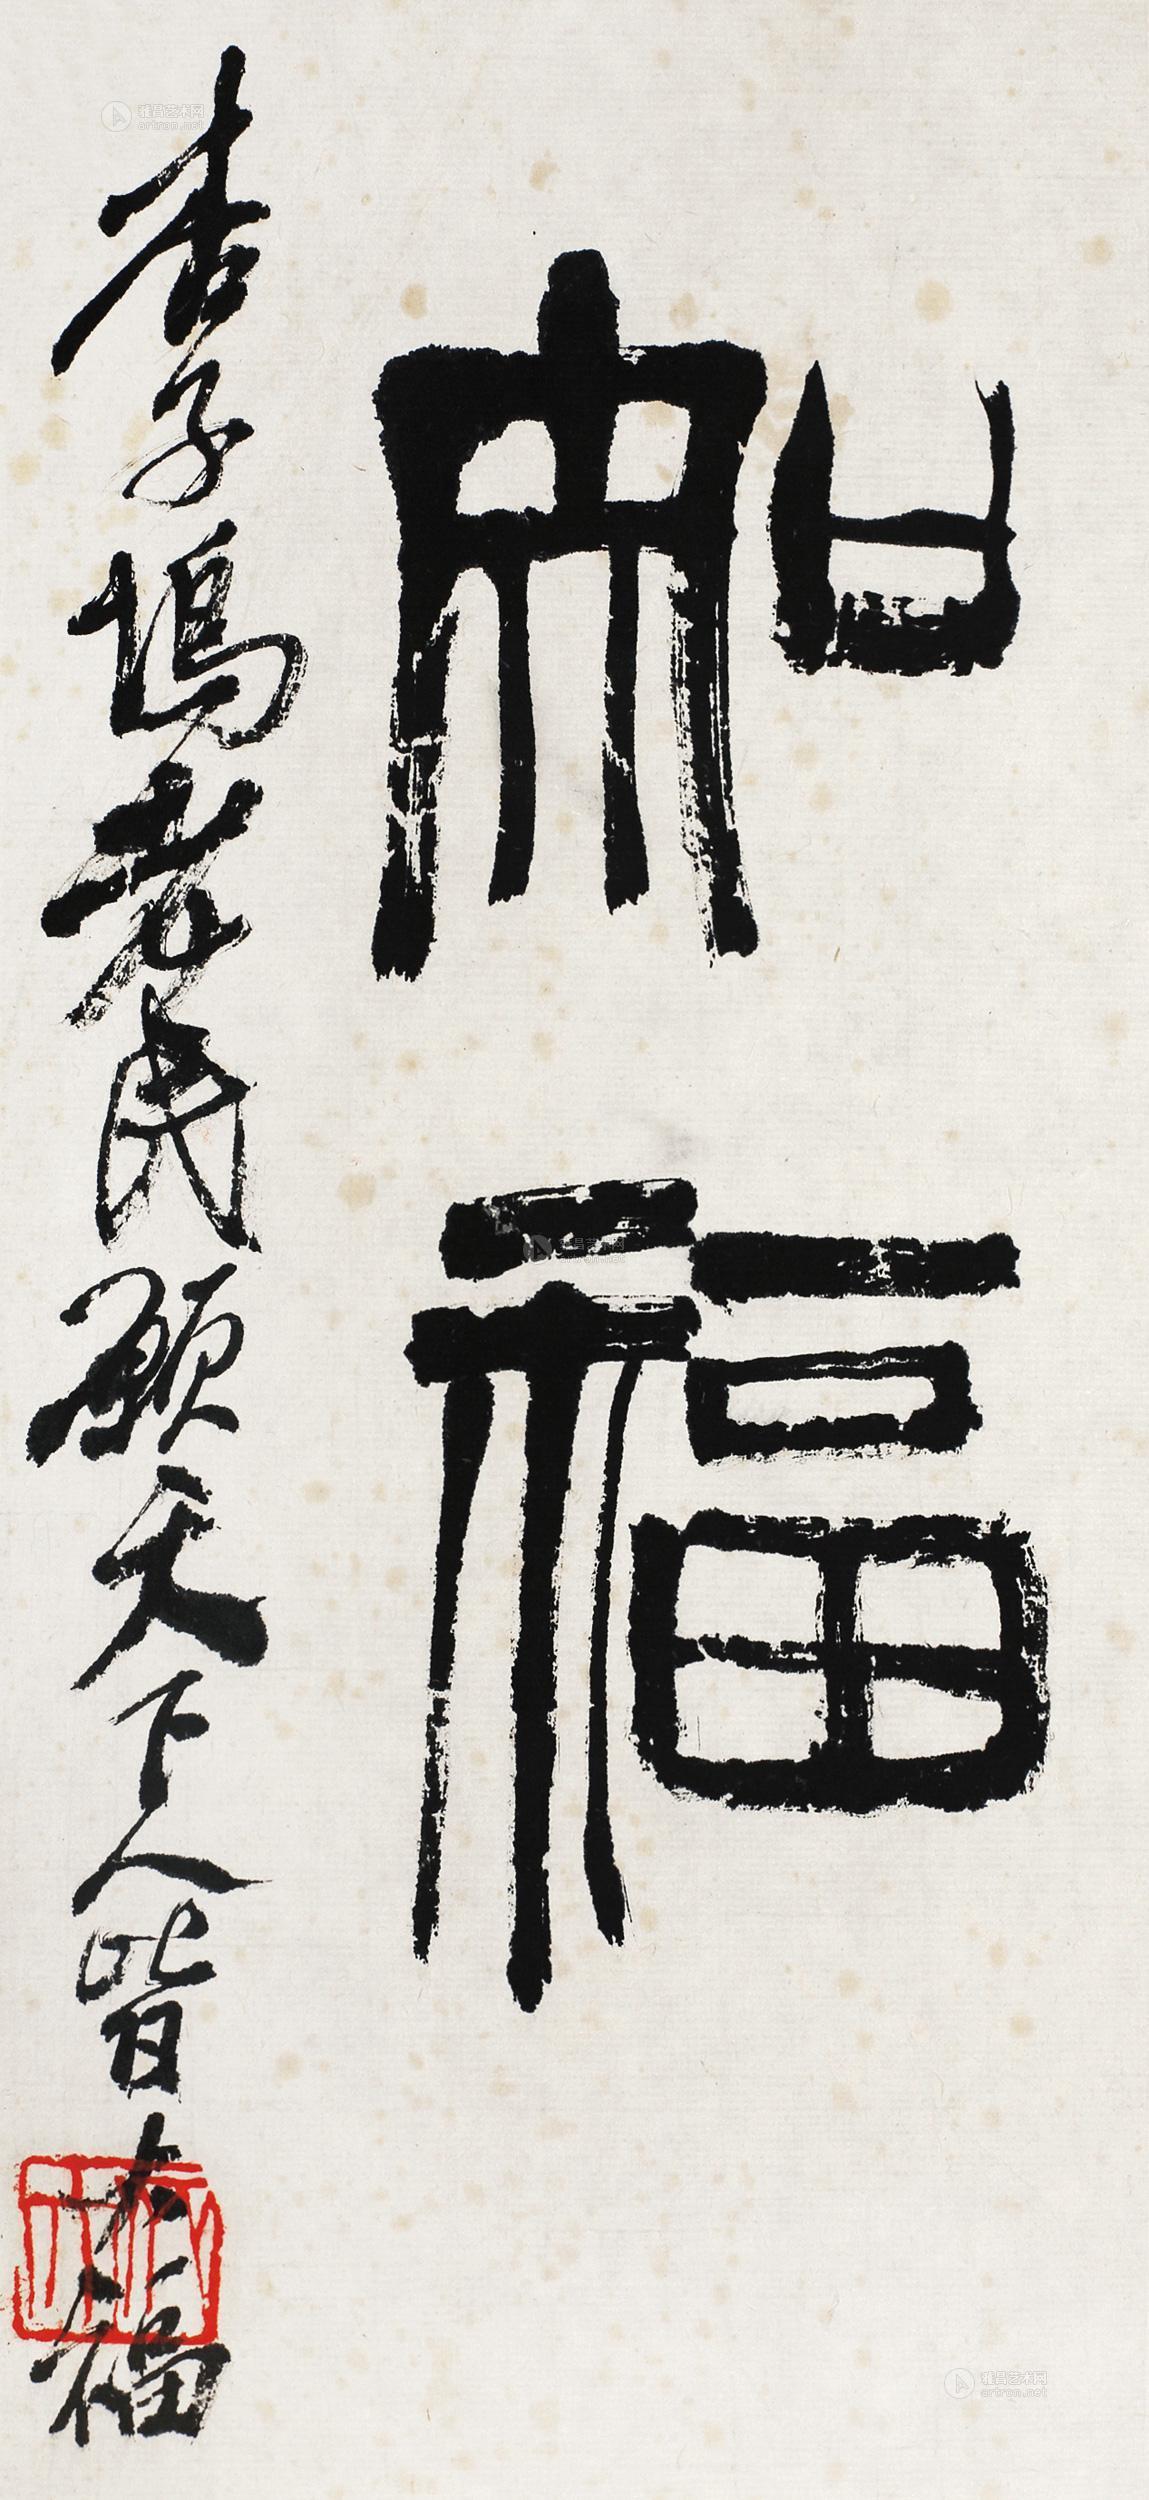 知福
杏子塢老民願天下人皆大福
雅昌艺术网
artron.net
雅昌艺术网
artron.net
雅昌艺术网
artron.net